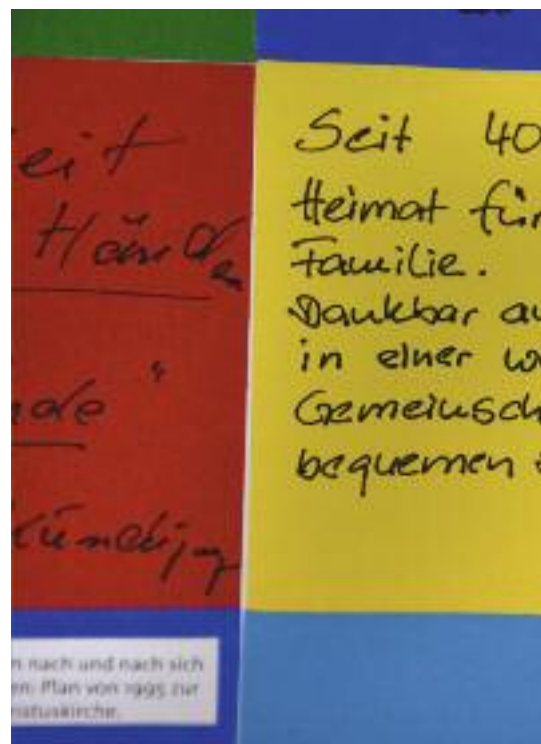 eit
Händen
nde"
kündigung
Seit 40
Heimat für
Familie.
Dankbar au
in einer w
Gemeinsch
bequemen
n nach und nach sich
en: Plan von 1995 zur
ristuskirche.